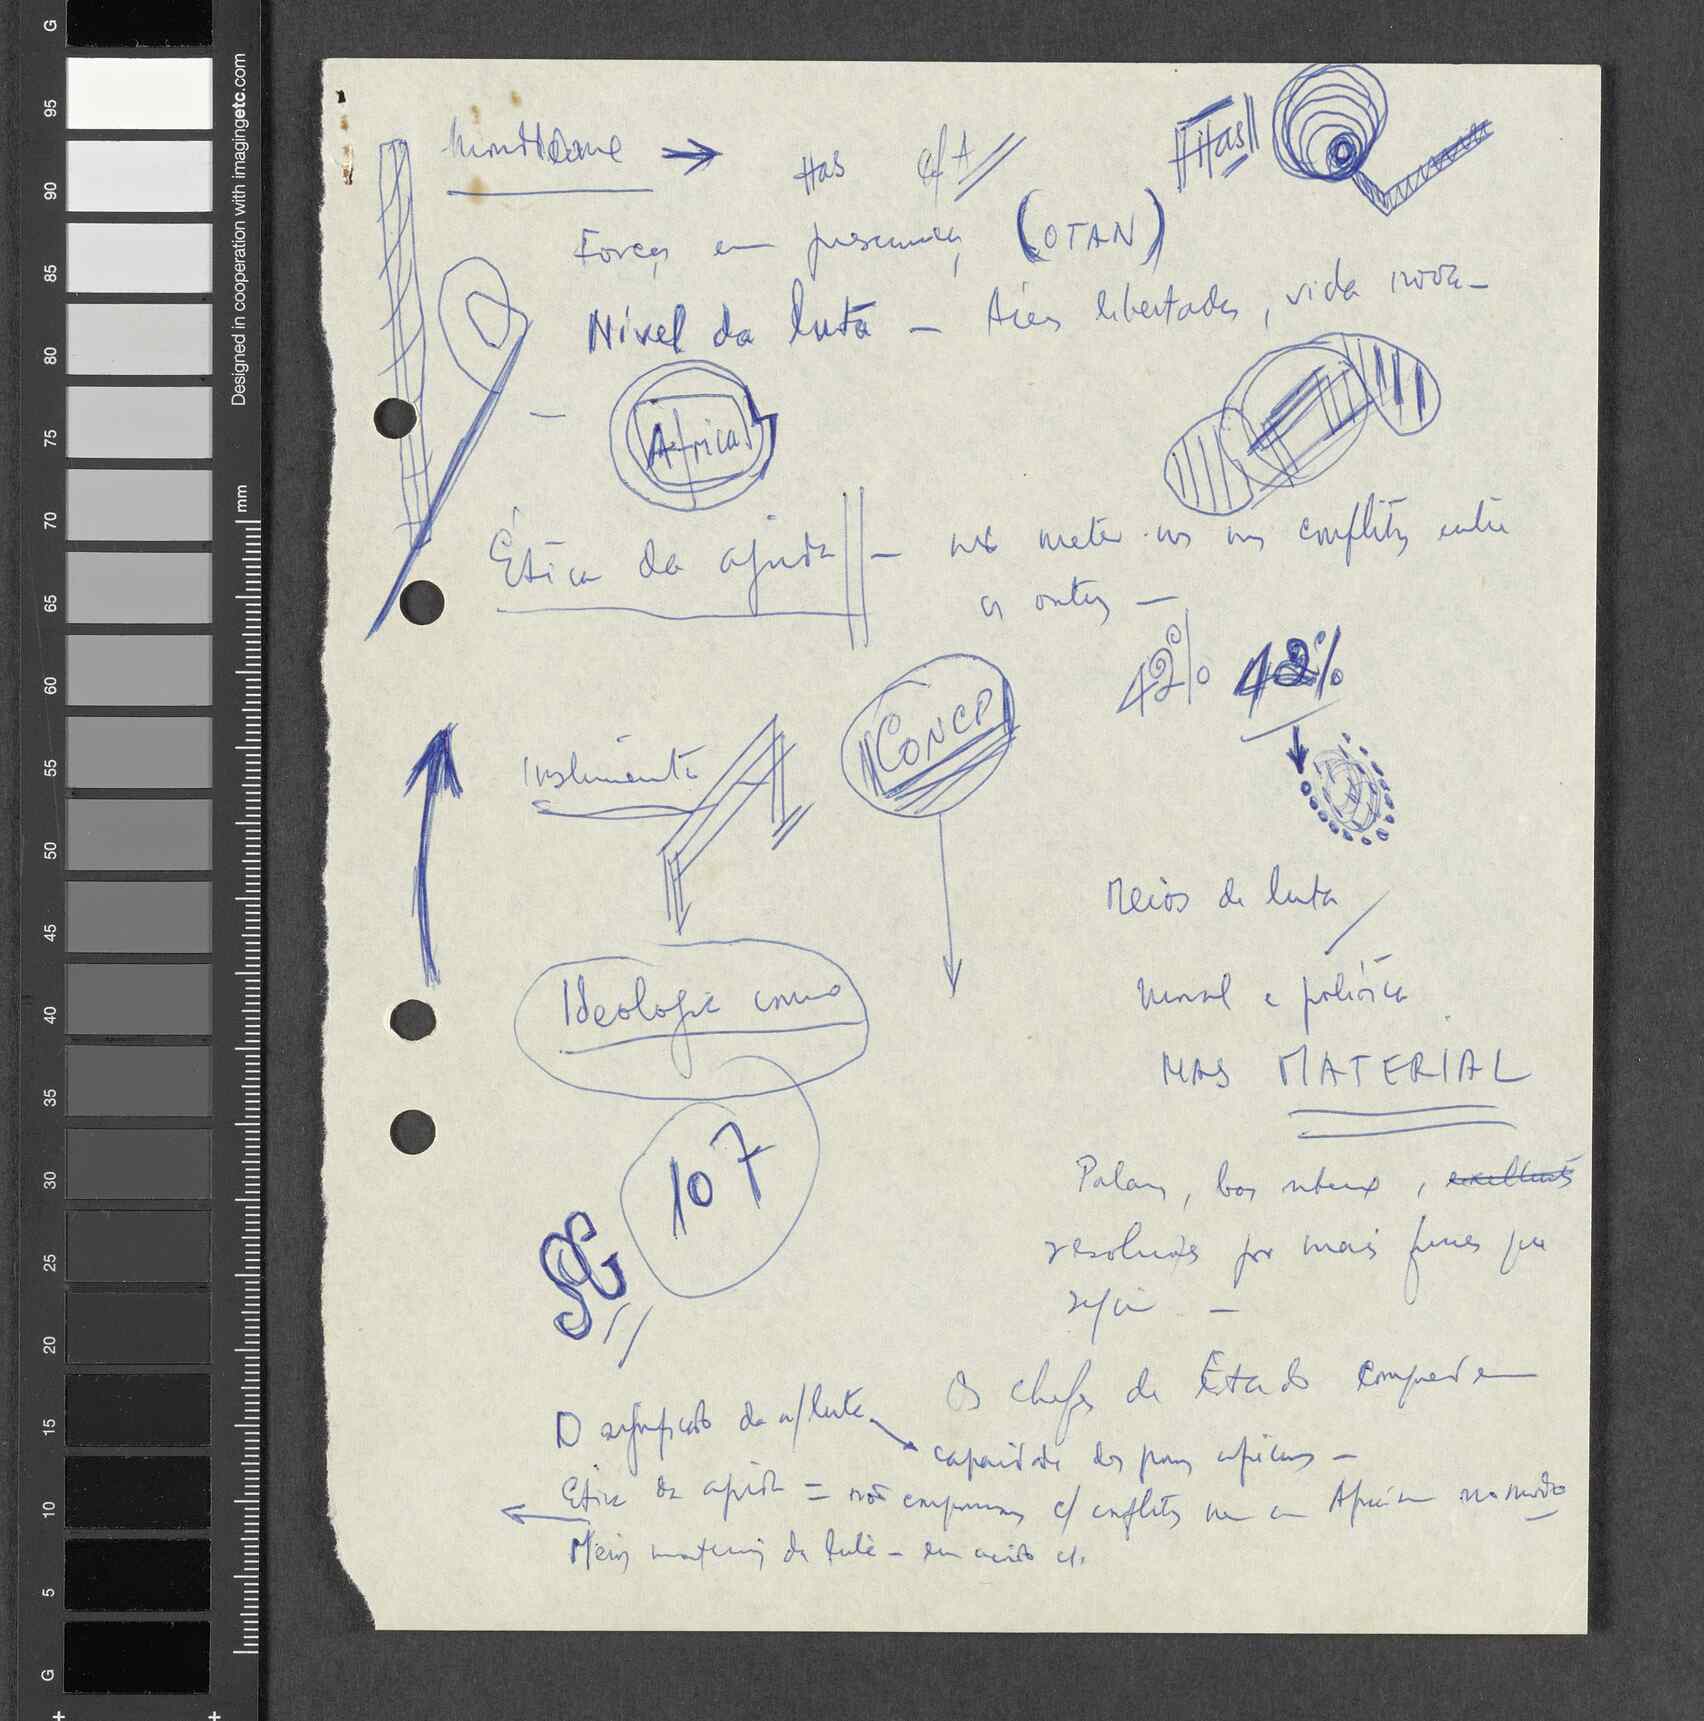 G 95 90 85 80 75 70 65 60 55 50 45 40 35 30 25 20 15 10 5 G
Designed in cooperation with imagingetc.com
mm
Has
Fitas
Forças em presença (OTAN)
Nível da luta — Áreas libertadas, vida nova —
— África
Ética da ajuda — não meter-nos nos conflitos entre
os outros —
42% 42%
CONCP
Instrumento
Meios de luta
Ideologia como
moral e política
MAS MATERIAL
107
Palavras, boas
resoluções por mais que
sejam —
Os chefes de Estado
O significado da n/ luta
capacidade dos povos africanos —
Ética da ajuda = não c/ conflitos em África no mundo
Meios materiais da luta —